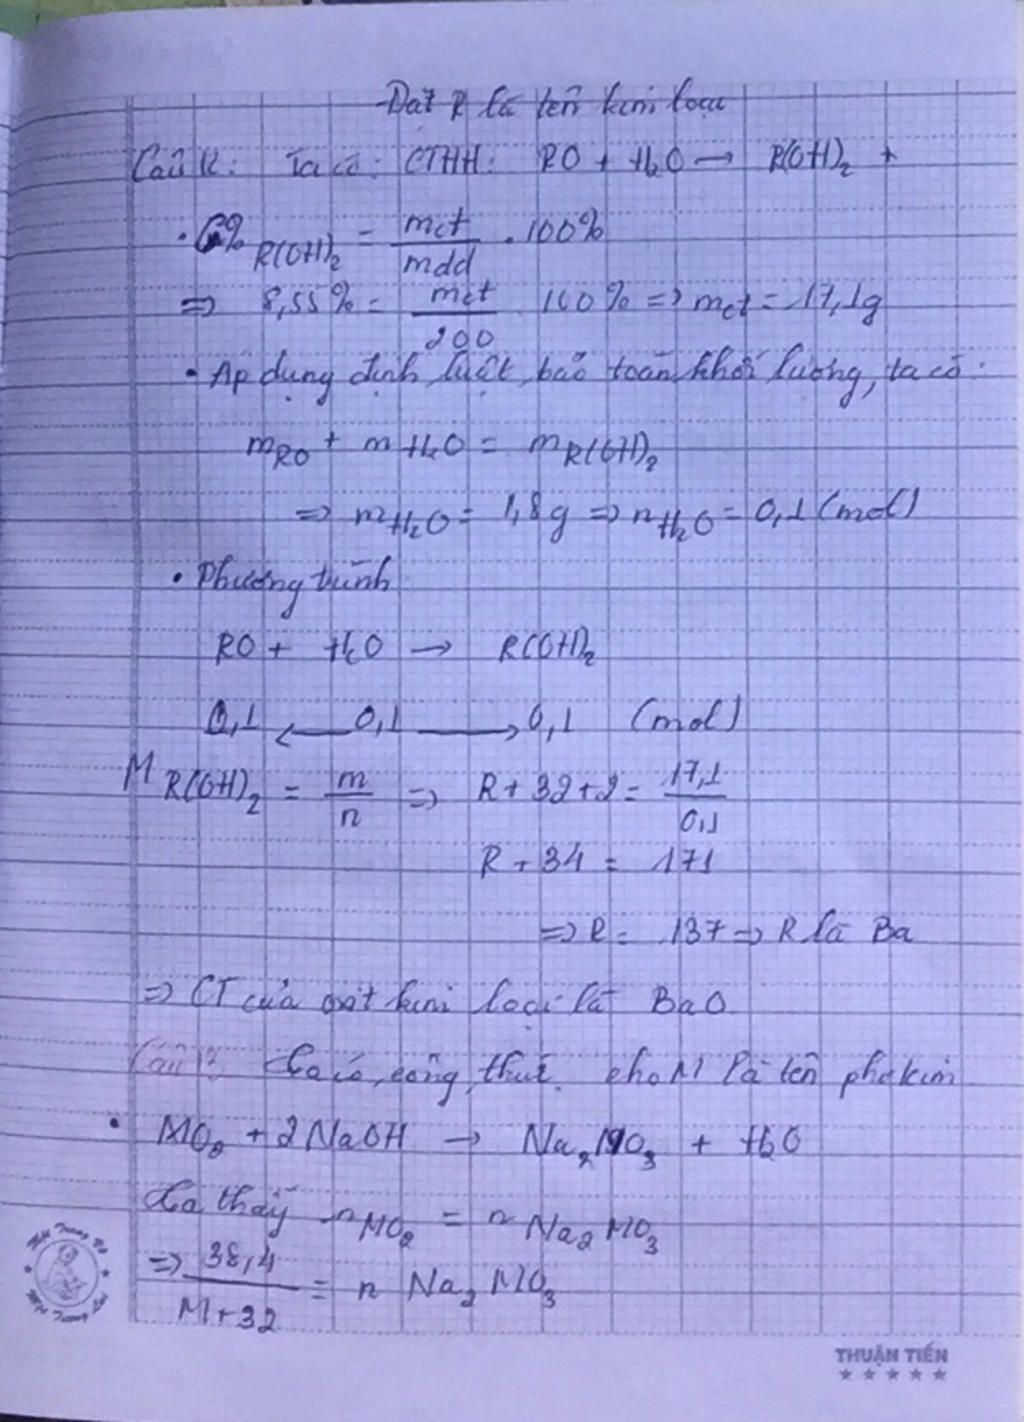 Đặt R là tên kim loại
Câu 12: Ta có: CTHH: RO + H₂O → R(OH)₂ +
• C% R(OH)₂ = mct / mdd . 100%
⇒ 8,55% = mct / 200 100% ⇒ mct = 17,1g
• Áp dụng định luật bảo toàn khối lượng, ta có:
mRO + mH₂O = mR(OH)₂
⇒ mH₂O = 1,8g ⇒ nH₂O = 0,1 (mol)
• Phương trình
RO + H₂O → R(OH)₂
0,1 ← 0,1 → 0,1 (mol)
M R(OH)₂ = m / n ⇒ R + 32 + 2 = 17,1 / 0,1
R + 34 = 171
⇒ R = 137 ⇒ R là Ba
⇒ CT của oxit kim loại là BaO
Câu 13 Ta có công thức. cho M là tên phi kim
• MO₂ + 2NaOH → Na₂MO₃ + H₂O
Ta thấy nMO₂ = n Na₂MO₃
⇒ 38,4 / M+32 = n Na₂MO₃
THUẬN TIẾN